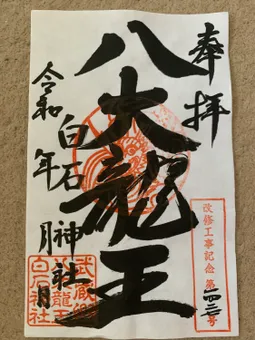 奉拝
八大龍王
白石神社
令和 年 月 日
改修工事記念 第 号
武蔵
白石神社